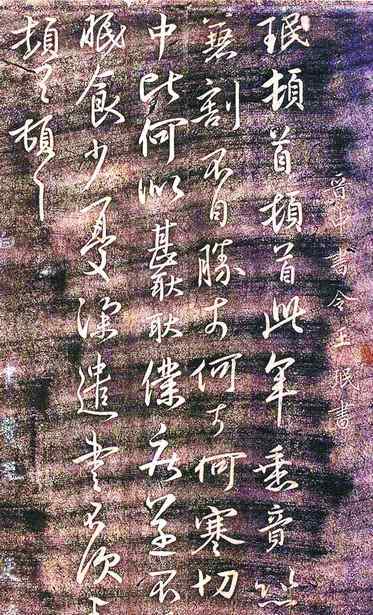 晋中書令王珉書
珉頓首頓首此年垂竟悲
兼割不自勝奈何奈何寒切
中此何似甚耿耿僕疾並不
眠食少憂深遣書不次
頓首頓首